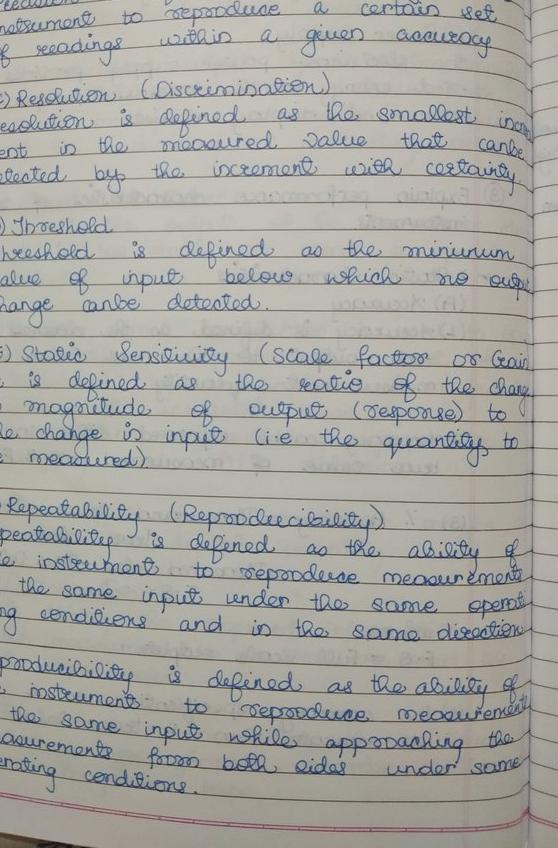 instrument to reproduce a certain set
f readings within a given accuracy
) Resolution (Discrimination)
esolution is defined as the smallest incre
ent in the measured value that canbe
etected by the increment with certainty.
) Threshold
hreshold is defined as the minimum
alue of input below which no output
hange canbe detected.
) Static Sensitivity (Scale factor or Gain
is defined as the ratio of the chang
magnitude of output (response) to
e change in input (i.e the quantity to
measured)
Repeatability (Reproducibility)
peatability is defined as the ability of
e instrument to reproduce measurements
the same input under the same operati
ng conditions and in the same direction
producibility is defined as the ability of
instrument to reproduce measurement
the same input while approaching the
asurements from both sides under same
erating conditions.